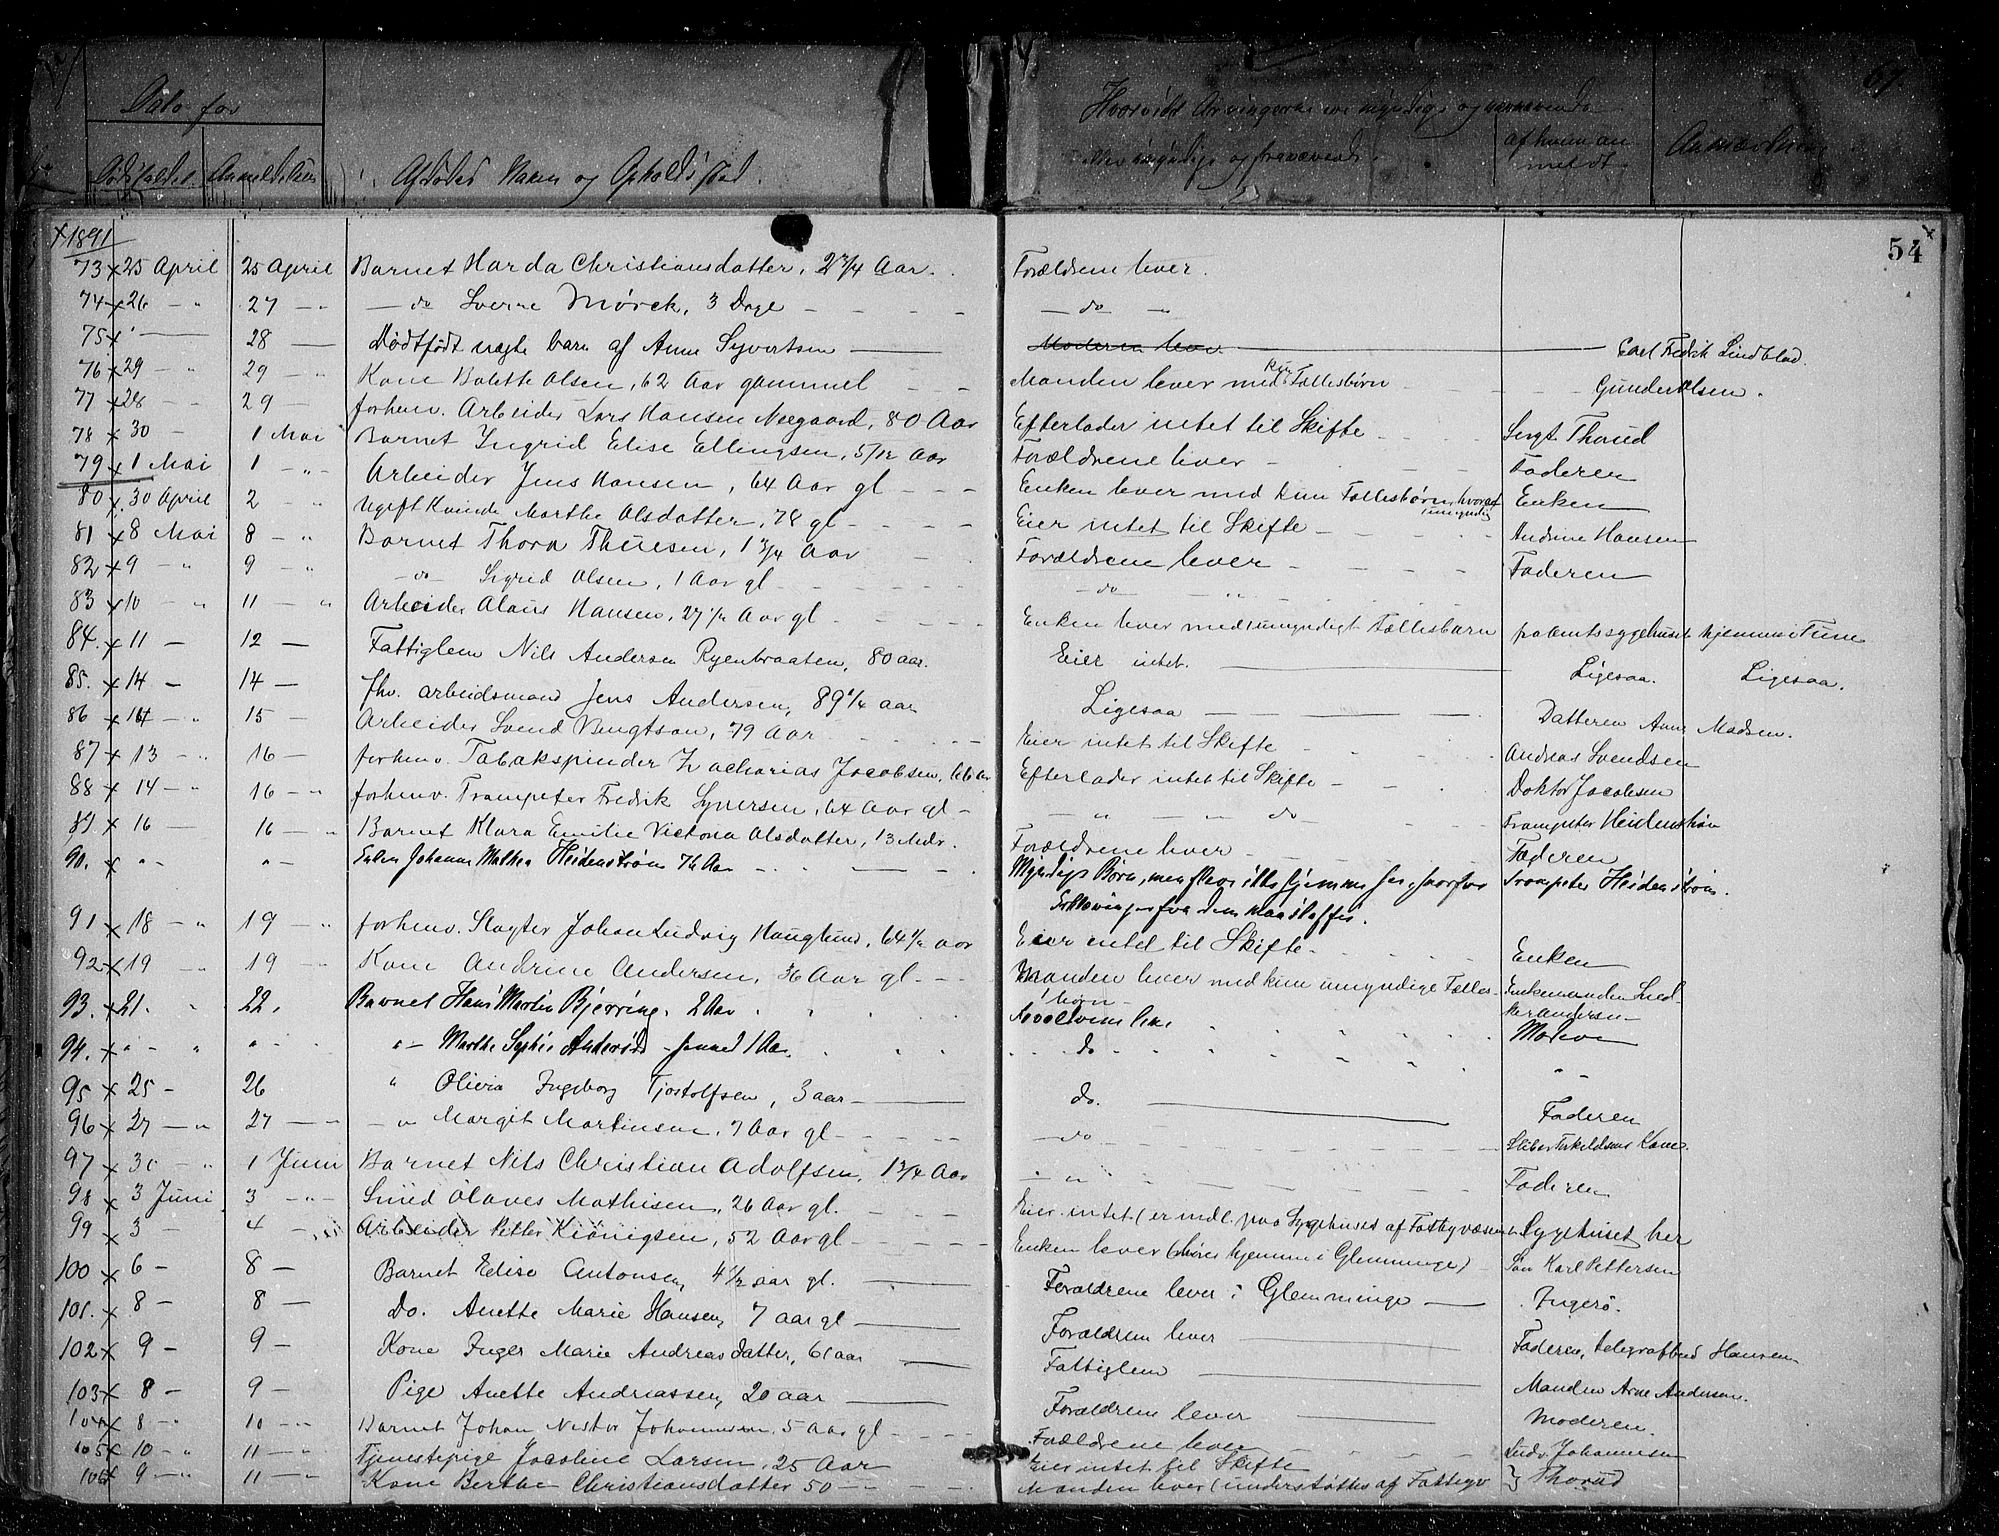 Dato for
Dødsfaldet. Anmeldelsen Afdødes Navn og Opholdssted. Hvorvidt Arvingerne ere myndige og nærværende eller umyndige og fraværende. af hvem anmeldt Anmærkning
67.
54
1891
73 x 25 April 25 April Barnet Harda Christiansdatter, 2 3/4 Aar. Forældrene lever.
74 x 26 - " 27 - " - do Sverre Mørck, 3 Dage - do - "
75 x 28 - Dødtfødt uægte barn af Anne Syvertsen Moderen lever Carl Fredrik Lindblad
76 x 29 - " 29 - " Kone Bolette Olsen, 62 Aar gammel Manden lever med kun Fællesbørn Gunder Olsen.
77 x 28 29 - forhenv. Arbeider Lars Hansen Neegaard, 80 Aar Efterlader intet til Skifte Sergt. Thorud
78 x 30 - 1 Mai Barnet Ingrid Elise Ellingsen, 5/12 Aar Forældrene lever Faderen
79 x 1 Mai 1 - " Arbeider Jens Hansen, 64 Aar gl Enken lever med kun Fællesbørn, hvoraf 1 umyndig Enken
80 x 30 April 2 - " Ugift Kvinde Marthe Olsdatter, 78 gl Eier intet til Skifte Andrine Hansen
81 x 8 Mai 8 - " Barnet Thora Thuesen, 1 3/4 Aar Forældrene lever Faderen
82 x 9 - " 9 - " - do - Sigrid Olsen, 1 Aar gl - do - "
83 x 10 - " 11 - " Arbeider Olaus Hansen, 27 1/2 Aar gl Enken lever med umyndigt Fællesbarn paa Amtssygehuset hjemme i Tune
84. x 11 - 12 - Fattiglem Nils Andersen Ryenbraaten, 80 aar. Eier intet. Ligesaa. Ligesaa.
85. x 14 - 14 - fhv. arbeidsmand Jens Andersen, 89 1/4 aar Ligesaa Datteren Anne Madsen.
86 x 14 - " 15 - Arbeider Svend Bengtson, 79 Aar Eier intet til Skifte Andreas Svendsen
87 x 13 - " 16 - forhenv. Tabakspinder Zacharias Jacobsen, 66 aar Efterlader intet til Skifte Doktor Jacobsen
88 x 14 - " 16 - " forhenv. Trompeter Fredrik Syversen, 64 Aar gl - " - " do Trompeter Heidenstrøm
89 x 16 - 16 - " Barnet Klara Emilie Victoria Olsdatter, 13 Mdr. Forældrene lever Faderen
90. x " " Enken Johanne Heidenstrøm 76 Aar Myndige Børn, Trompeter Heidenstrøm.
91 x 18 - " 19 - " forhenv. Slagter Johan Ludvig Hauglund, 64 1/2 aar Eier intet til Skifte Enken
92 x 19 - " 19 - " Kone Andrine Andersen, 36 Aar gl Manden lever med kun umyndige Fællesbørn Enkemanden
93. x 21. " 22. Barnet Hans Martin Bjerring. 2 Aar Forældrene leve Moderen
94. x " " " " - Marthe Sophie 1 Aar do " "
95 x 25 - 26 " Olivia Ingeborg Tjostolfsen, 3 aar do. Faderen
96 x 27 - " 27 - " - " Margit Martinsen, 7 Aar gl - do Kone.
97 x 30 - " 1 Juni Barnet Nils Christian Adolfsen, 1 3/4 Aar - " Faderen
98 x 3 Juni 3 - " Smed Olaves Mathisen, 26 Aar gl. Eier intet (er indl. paa Sygehuset af Fattigvæsenet Sygehuset her
99 x 3 - 4 - " Arbeider Petter Kiönigsen, 52 Aar gl Enken lever (hører hjemme i Glemminge) Søn Karl Pettersen
100 x 6 - 8 - Barnet Edise Antonsen, 4 1/2 aar gl. Forældrene lever i Glemminge Ingerø.
101. x 8 - 8 - Do. Anette Marie Hansen, 7 aar gl Forældrene lever Faderen, telegrafbud Hansen
102 x 9 - 9 - Kone Inger Marie Andreasdatter, 61 aar Fattiglem Manden Arne Andersen.
103 x 8 - 9 - Pige Anette Andreassen, 20 aar Forældrene lever Moderen.
104 x 8 - " 10 - " Barnet Johan Nestor Johannesen, 5 Aar gl Forældrene lever Ludv. Johannesen
105 x 10 - " 11 - " Tjenestepige Josefine Larsen, 25 Aar Eier intet til Skifte } Thorud
106 x 9 - " 11 - " Kone Berthe Christiansdatter 50 - Manden lever (understøttes af Fattigv